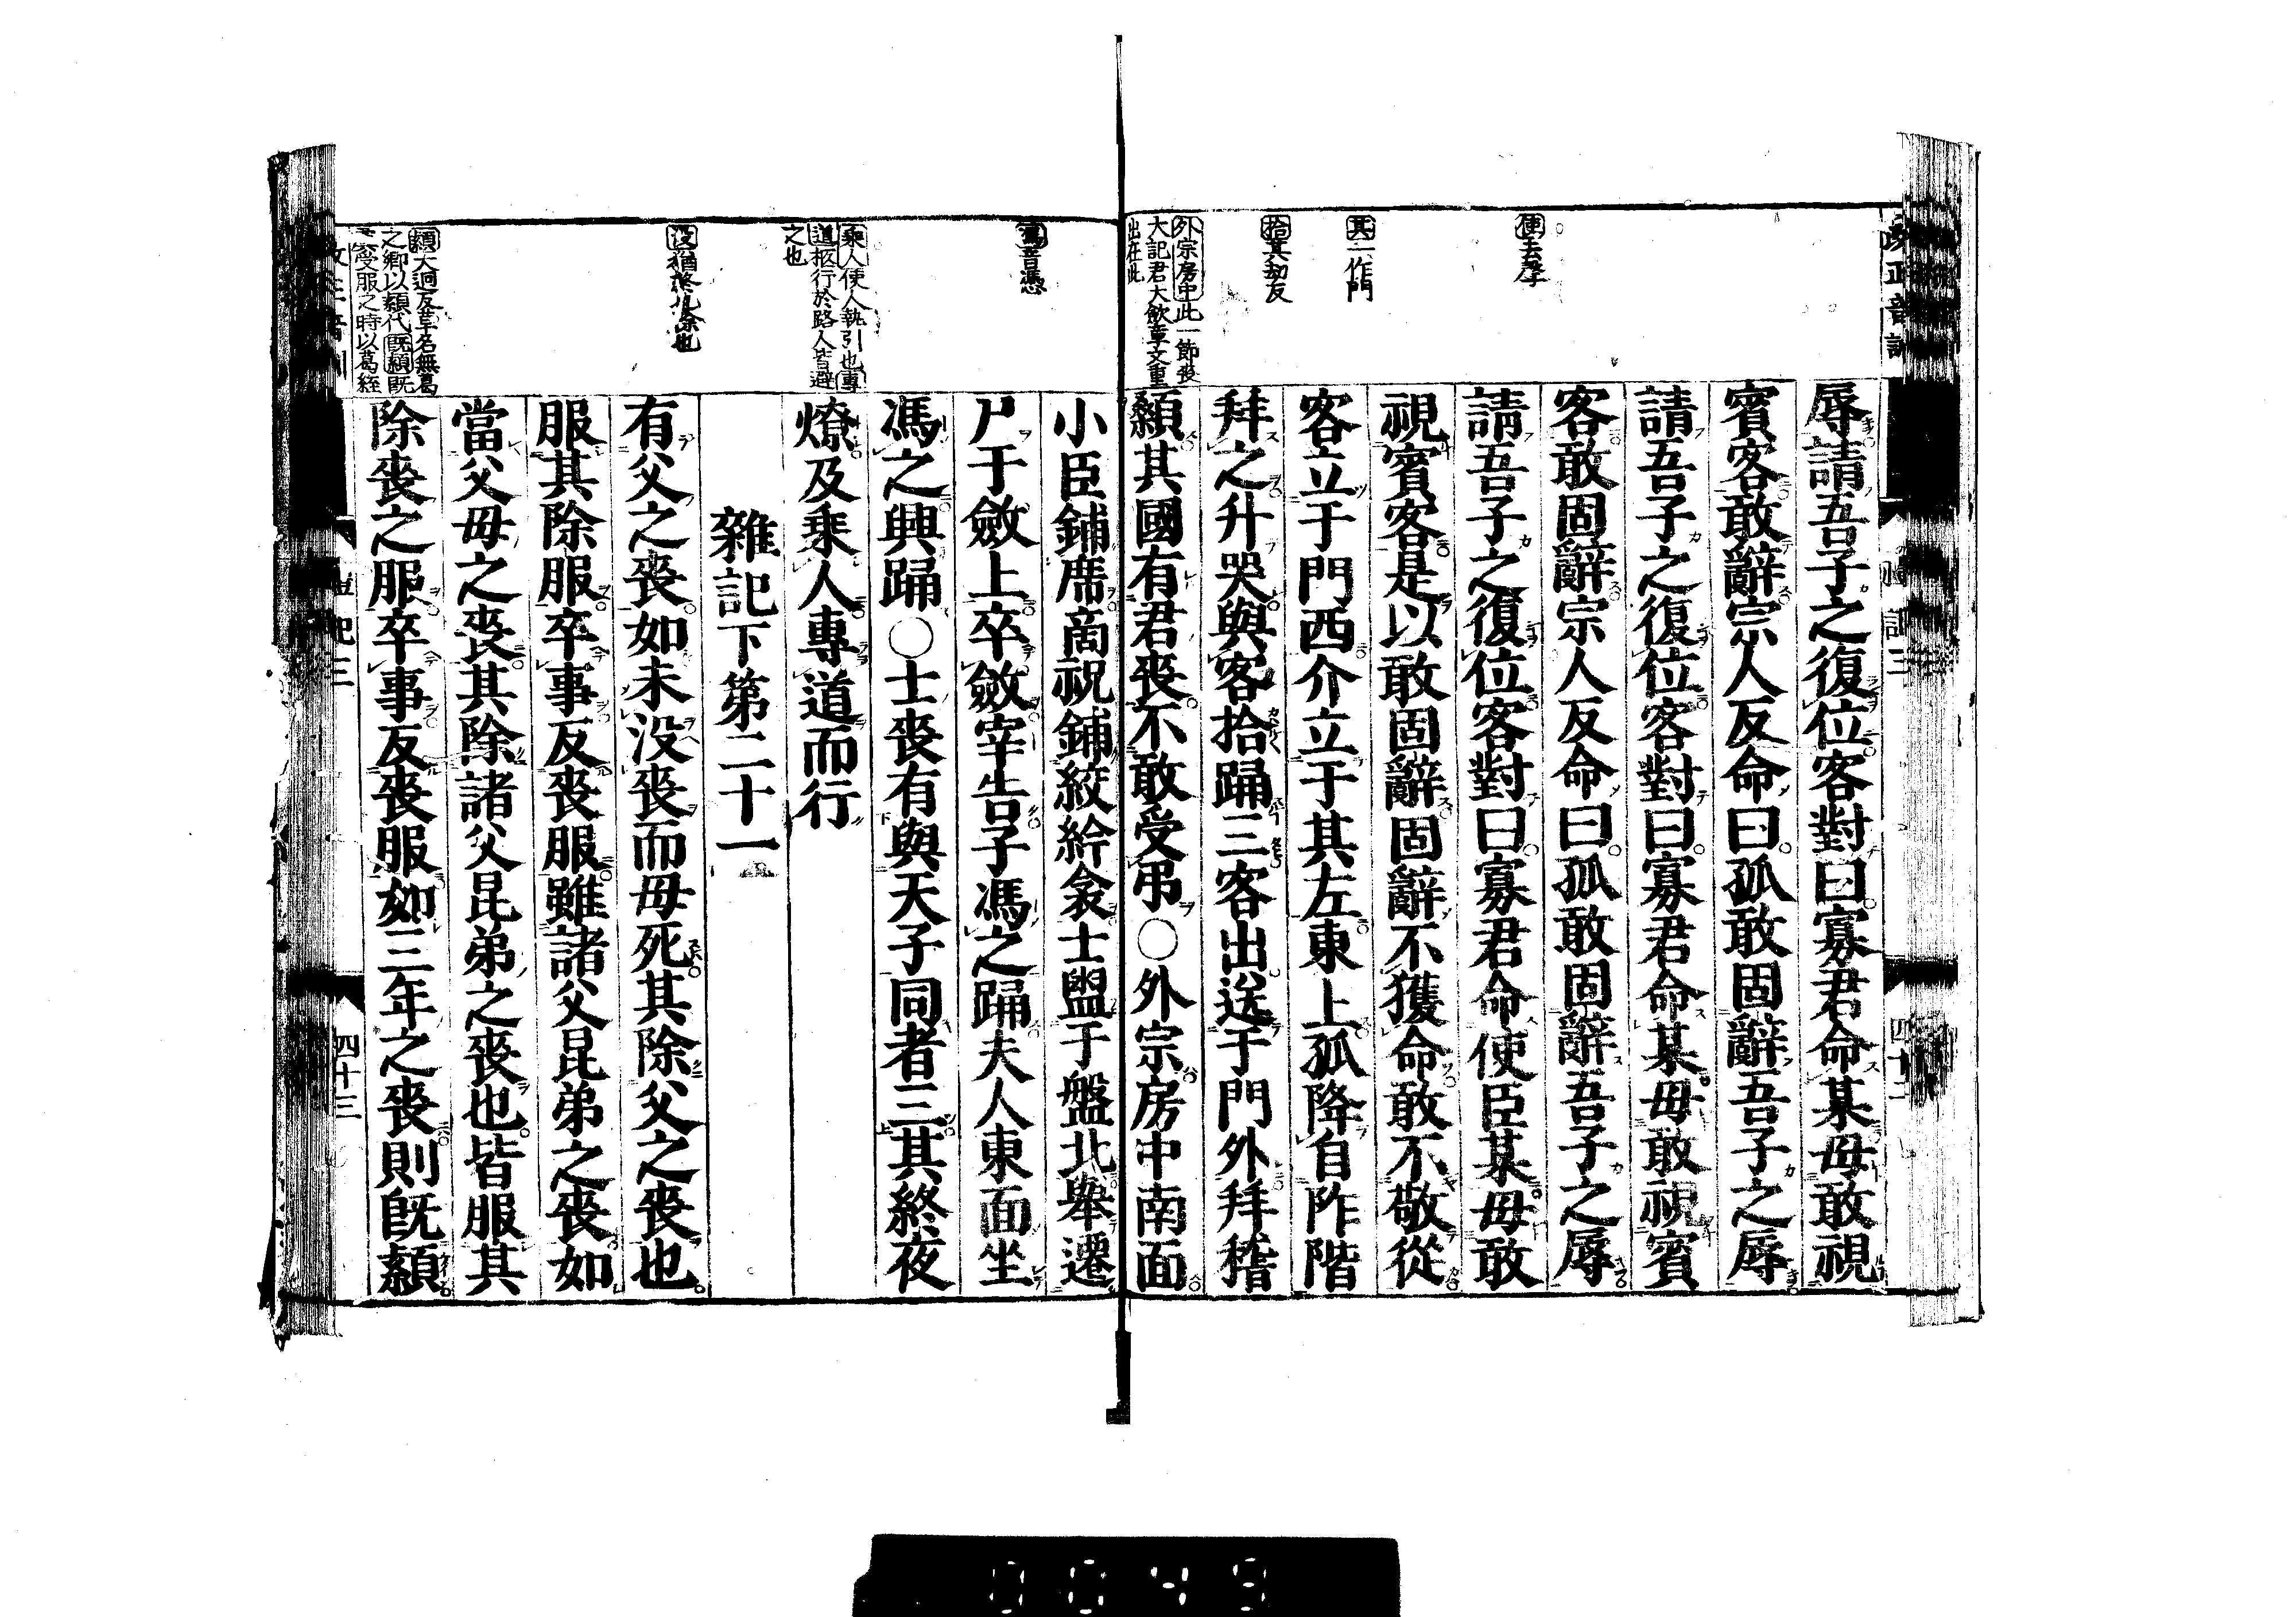 使去聲
其一作門
拾其劫反
外宗房中此一節喪
大記君大斂章文重
出在此
辱請吾子之復位客對曰寡君命某毋敢視
賓客敢辭宗人反命曰孤敢固辭吾子之辱
請吾子之復位客對曰寡君命某毋敢視賓
客敢固辭宗人反命曰孤敢固辭吾子之辱
請吾子之復位客對曰寡君命使臣某毋敢
視賓客是以敢固辭固辭不獲命敢不敬從
客立于門西介立于其左東上孤降自阼階
拜之升哭與客拾踊三客出送于門外拜稽
顙其國有君喪不敢受弔○外宗房中南面
馮音憑
乘人使人執引也專
道柩行於路人皆避
之也
没猶終也除也
顈大迥反草名無葛
之鄉以顈代既顈既
受服之時以葛絰
小臣鋪席商祝鋪絞紟衾士盥于盤北舉遷
尸于斂上卒斂宰告子馮之踊夫人東面坐
馮之興踊○士喪有與天子同者三其終夜
燎及乘人專道而行
雜記下第二十一
有父之喪如未没喪而母死其除父之喪也
服其除服卒事反喪服雖諸父昆弟之喪如
當父母之喪其除諸父昆弟之喪也皆服其
除喪之服卒事反喪服如三年之喪則既顈
四十三
0049